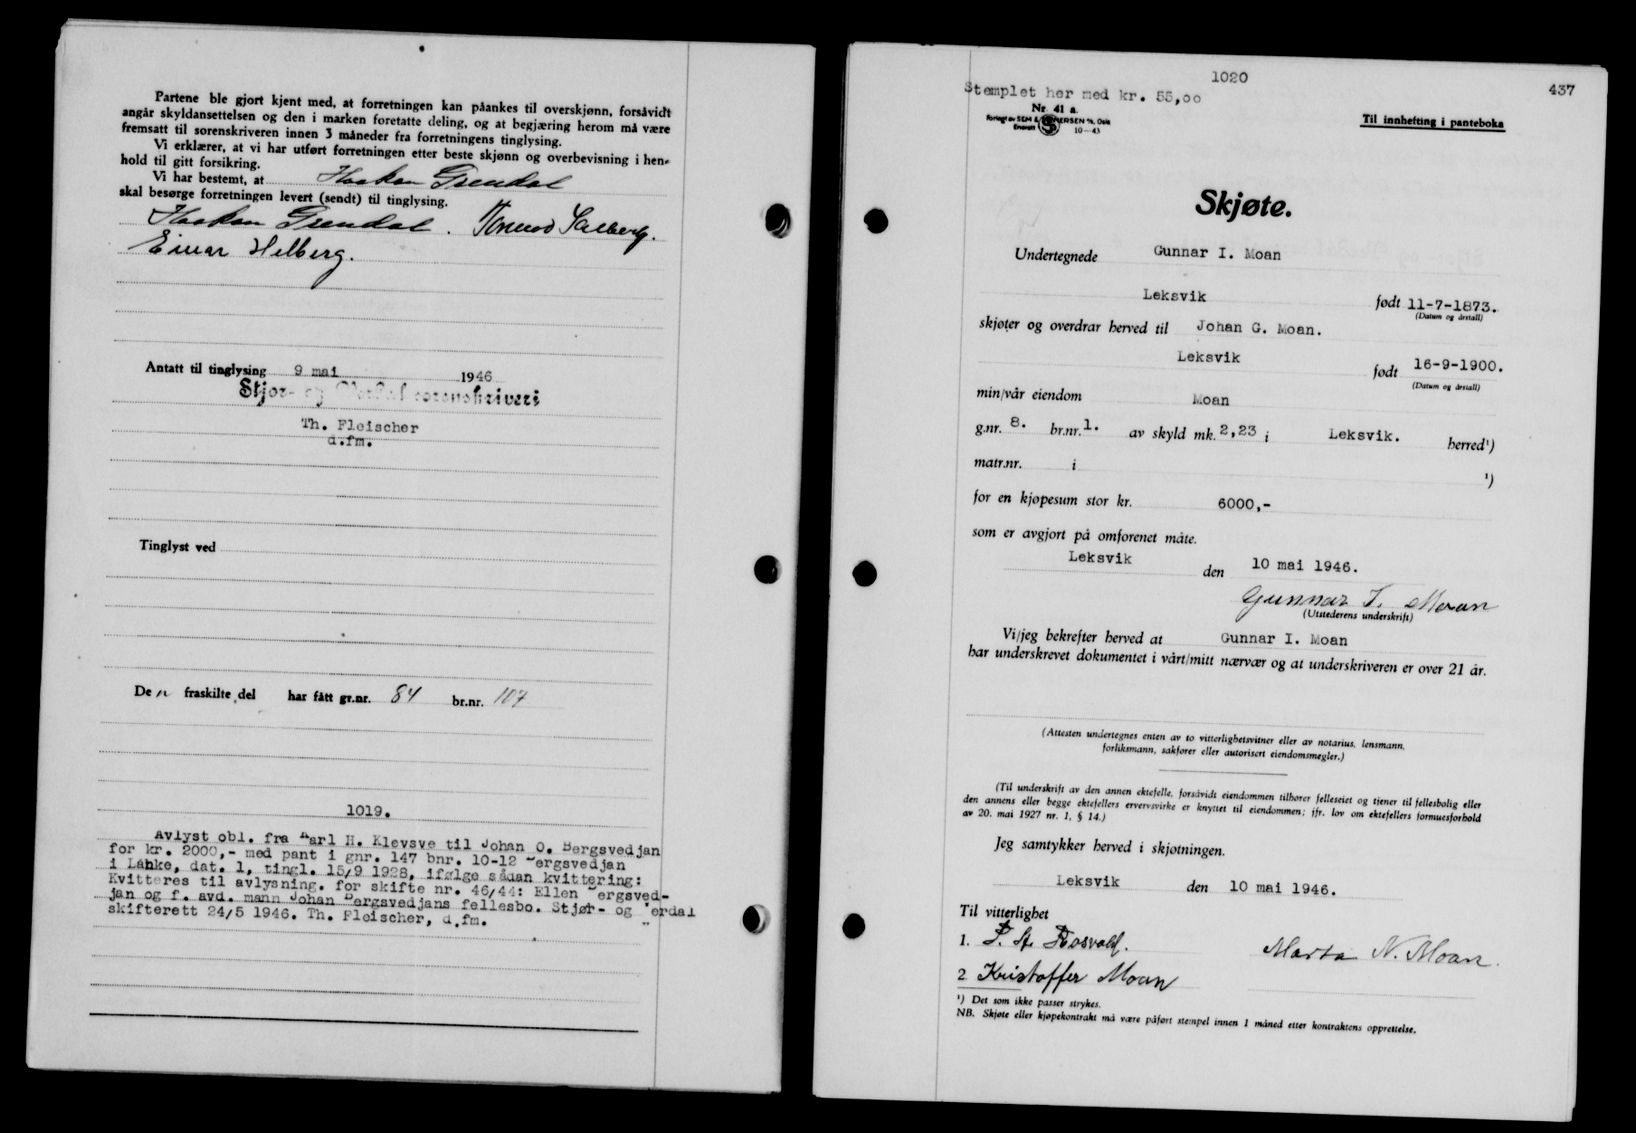 Partene ble gjort kjent med, at forretningen kan påankes til overskjønn, forsåvidt
angår skyldansettelsen og den i marken foretatte deling, og at begjæring herom må være
fremsatt til sorenskriveren innen 3 måneder fra forretningens tinglysing.
Vi erklærer, at vi har utført forretningen etter beste skjønn og overbevisning i hen-
hold til gitt forsikring.
Vi har bestemt, at Haakon Grendal
skal besørge forretningen levert (sendt) til tinglysing.
Haakon Grendal.
Einar Helberg.
Antatt til tinglysing 9 mai 1946
Stjør- og Verdal sorenskriveri
Th. Fleischer
d.fm.
Tinglyst ved
Den fraskilte del har fått gr.nr. 84 br.nr. 107
1019.
Avlyst obl. fra Karl H. Klevsve til Johan O. Bergsvedjan
for kr. 2000,- med pant i gnr. 147 bnr. 10-12 Bergsvedjan
i Lånke, dat. 1, tingl. 15/9 1928, ifølge sådan kvittering:
Kvitteres til avlysning. for skifte nr. 46/44: Ellen Bergsved-
jan og f. avd. mann Johan Bergsvedjans fellesbo. Stjør- og Verdal
skifterett 24/5 1946. Th. Fleischer, d.fm.
1020
437
Stemplet her med kr. 55,00
Nr. 41 a.
10-43
Til innhefting i panteboka
Skjøte.
Undertegnede Gunnar I. Moan
Leksvik født 11-7-1873.
(Datum og årstall)
skjøter og overdrar herved til Johan G. Moan.
Leksvik født 16-9-1900.
(Datum og årstall)
min/vår eiendom Moan
g.nr. 8. br.nr. 1. av skyld mk. 2,23 i Leksvik. herred¹)
matr.nr. i ¹)
for en kjøpesum stor kr. 6000,-
som er avgjort på omforenet måte.
Leksvik den 10 mai 1946.
Gunnar I. Moan
(Utstederens underskrift)
Vi/jeg bekrefter herved at Gunnar I. Moan
har underskrevet dokumentet i vårt/mitt nærvær og at underskriveren er over 21 år.
(Attesten undertegnes enten av to vitterlighetsvitner eller av notarius, lensmann,
forliksmann, sakfører eller autorisert eiendomsmegler.)
(Til underskrift av den annen ektefelle, forsåvidt eiendommen tilhører felleseiet og tjener til fellesbolig eller
den annens eller begge ektefellers ervervsvirke er knyttet til eiendommen; jfr. lov om ektefellers formuesforhold
av 20. mai 1927 nr. 1, § 14.)
Jeg samtykker herved i skjøtningen.
Leksvik den 10 mai 1946.
Til vitterlighet
1.
Marta N. Moan.
2. Kristoffer Moan
¹) Det som ikke passer strykes.
NB. Skjøte eller kjøpekontrakt må være påført stempel innen 1 måned etter kontraktens opprettelse.